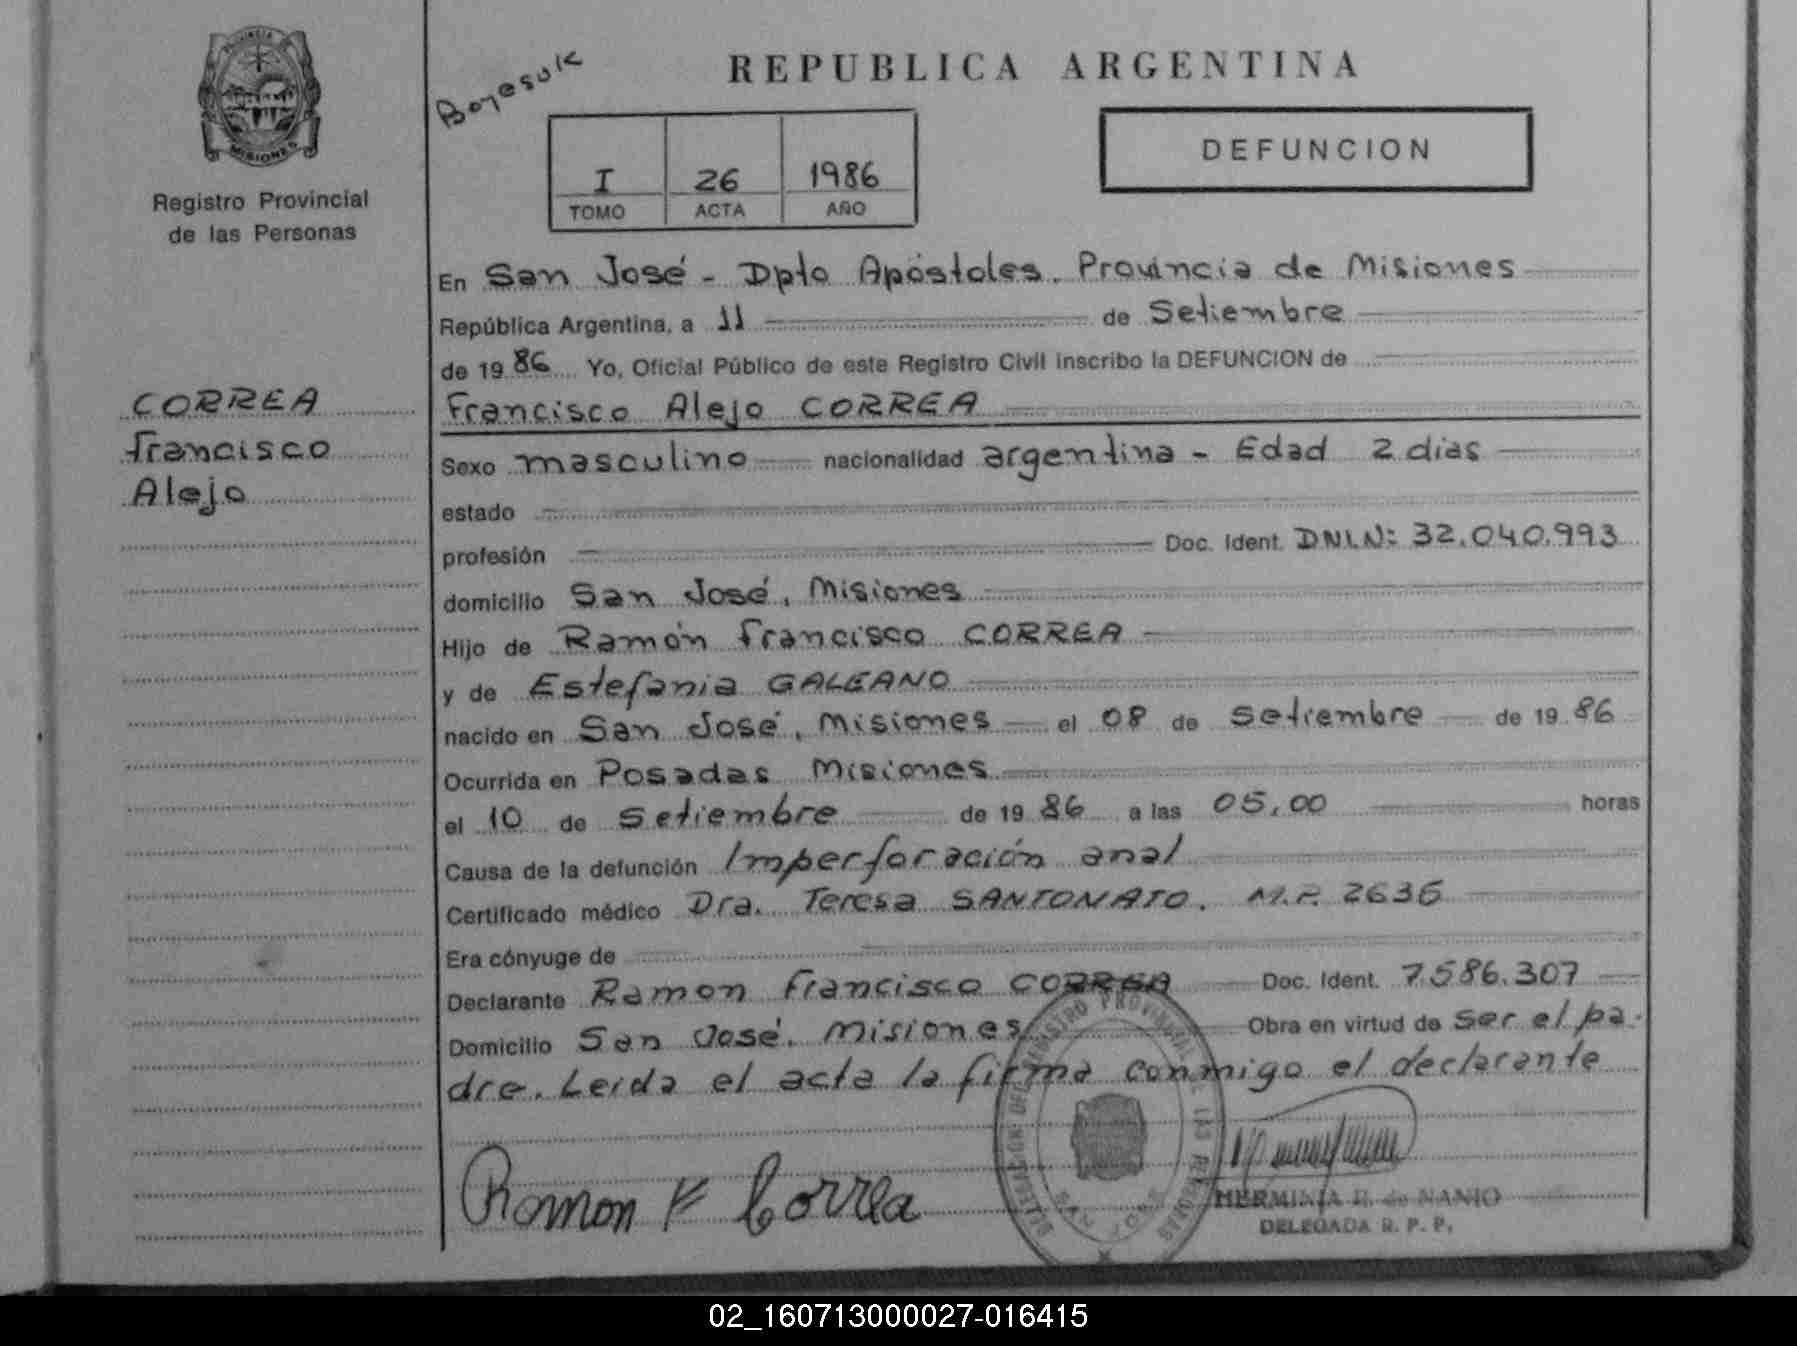 REPUBLICA ARGENTINA
PROVINCIA DE
MISIONES
Registro Provincial
de las Personas
I 26 1986
TOMO ACTA AÑO
DEFUNCION
CORREA
Francisco
Alejo
En San José - Dpto Apóstoles. Provincia de Misiones
República Argentina, a 11 de Setiembre
de 1986 Yo, Oficial Público de este Registro Civil inscribo la DEFUNCION de
Francisco Alejo CORREA
Sexo masculino nacionalidad argentina - Edad 2 dias
estado
profesión Doc. Ident. DNI.N: 32.040.993
domicilio San José, Misiones
Hijo de Ramón Francisco CORREA
y de Estefania GALEANO
nacido en San José, Misiones el 08 de setiembre de 1986
Ocurrida en Posadas Misiones
el 10 de setiembre de 1986 a las 05,00 horas
Causa de la defunción Imperforación anal
Certificado médico Dra. Teresa SANTONATO. M.P. 2636
Era cónyuge de
Declarante Ramon Francisco CORREA Doc. Ident. 7.586.307
Domicilio San José. Misiones Obra en virtud de ser el pa-
dre. Leida el acta la firma conmigo el declarante
Ramon F Correa
HERMINIA R. de NANIO
DELEGADA R. P. P.
02_160713000027-016415